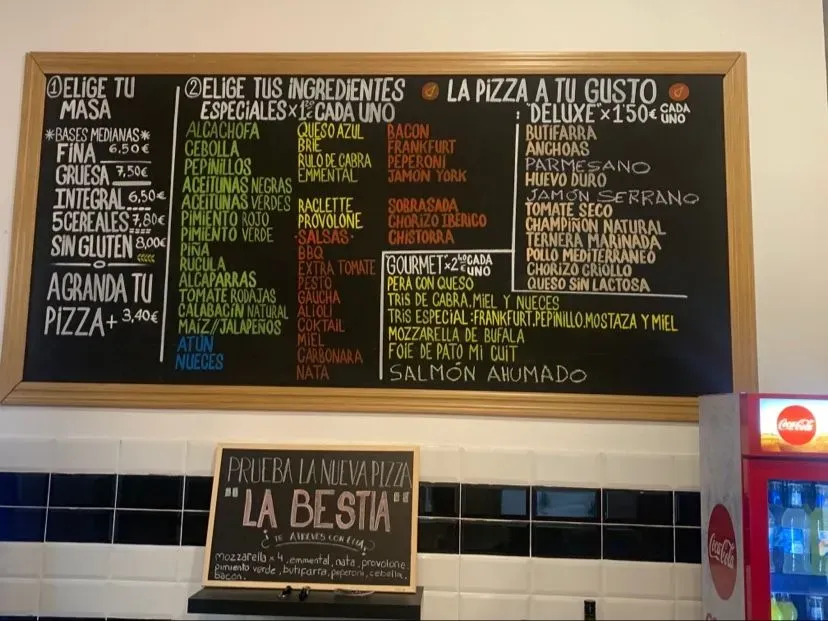 ① ELIGE TU
MASA
*BASES MEDIANAS*
FINA 6,50€
GRUESA 7,50€
INTEGRAL 6,50€
5 CEREALES 7,80€
SIN GLUTEN 8,00€
AGRANDA TU
PIZZA + 3,40€
② ELIGE TUS INGREDIENTES
ESPECIALES x 1'20 CADA UNO
LA PIZZA A TU GUSTO
ALCACHOFA
CEBOLLA
PEPINILLOS
ACEITUNAS NEGRAS
ACEITUNAS VERDES
PIMIENTO ROJO
PIMIENTO VERDE
PIÑA
RUCULA
ALCAPARRAS
TOMATE RODAJAS
CALABACÍN NATURAL
MAÍZ // JALAPEÑOS
ATÚN
NUECES
QUESO AZUL
BRIE
RULO DE CABRA
EMMENTAL
RACLETTE
PROVOLONE
·SALSAS·
BBQ
EXTRA TOMATE
PESTO
GAUCHA
ALIOLI
COKTAIL
MIEL
CARBONARA
NATA
BACON
FRANKFURT
PEPERONI
JAMON YORK
SOBRASADA
CHORIZO IBERICO
CHISTORRA
"DELUXE" x 1'50€ CADA UNO
BUTIFARRA
ANCHOAS
PARMESANO
HUEVO DURO
JAMÓN SERRANO
TOMATE SECO
CHAMPIÑON NATURAL
TERNERA MARINADA
POLLO MEDITERRÁNEO
CHORIZO CRIOLLO
QUESO SIN LACTOSA
GOURMET x 2'40€ CADA UNO
PERA CON QUESO
TRIS DE CABRA, MIEL Y NUECES
TRIS ESPECIAL: FRANKFURT, PEPINILLO, MOSTAZA Y MIEL
MOZZARELLA DE BUFALA
FOIE DE PATO MI CUIT
SALMÓN AHUMADO
PRUEBA LA NUEVA PIZZA
"LA BESTIA"
¿TE ATREVES CON ELLA?
mozzarella x 4, emmental, nata, provolone,
pimiento verde, butifarra, peperoni, cebolla,
bacon.
Coca-Cola
Coca-Cola